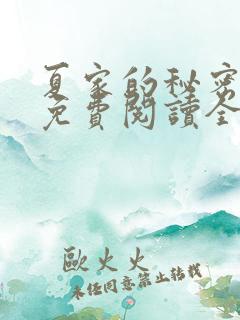 夏家的秘密
免費閱讀全
歐火火
未经同意禁止转载